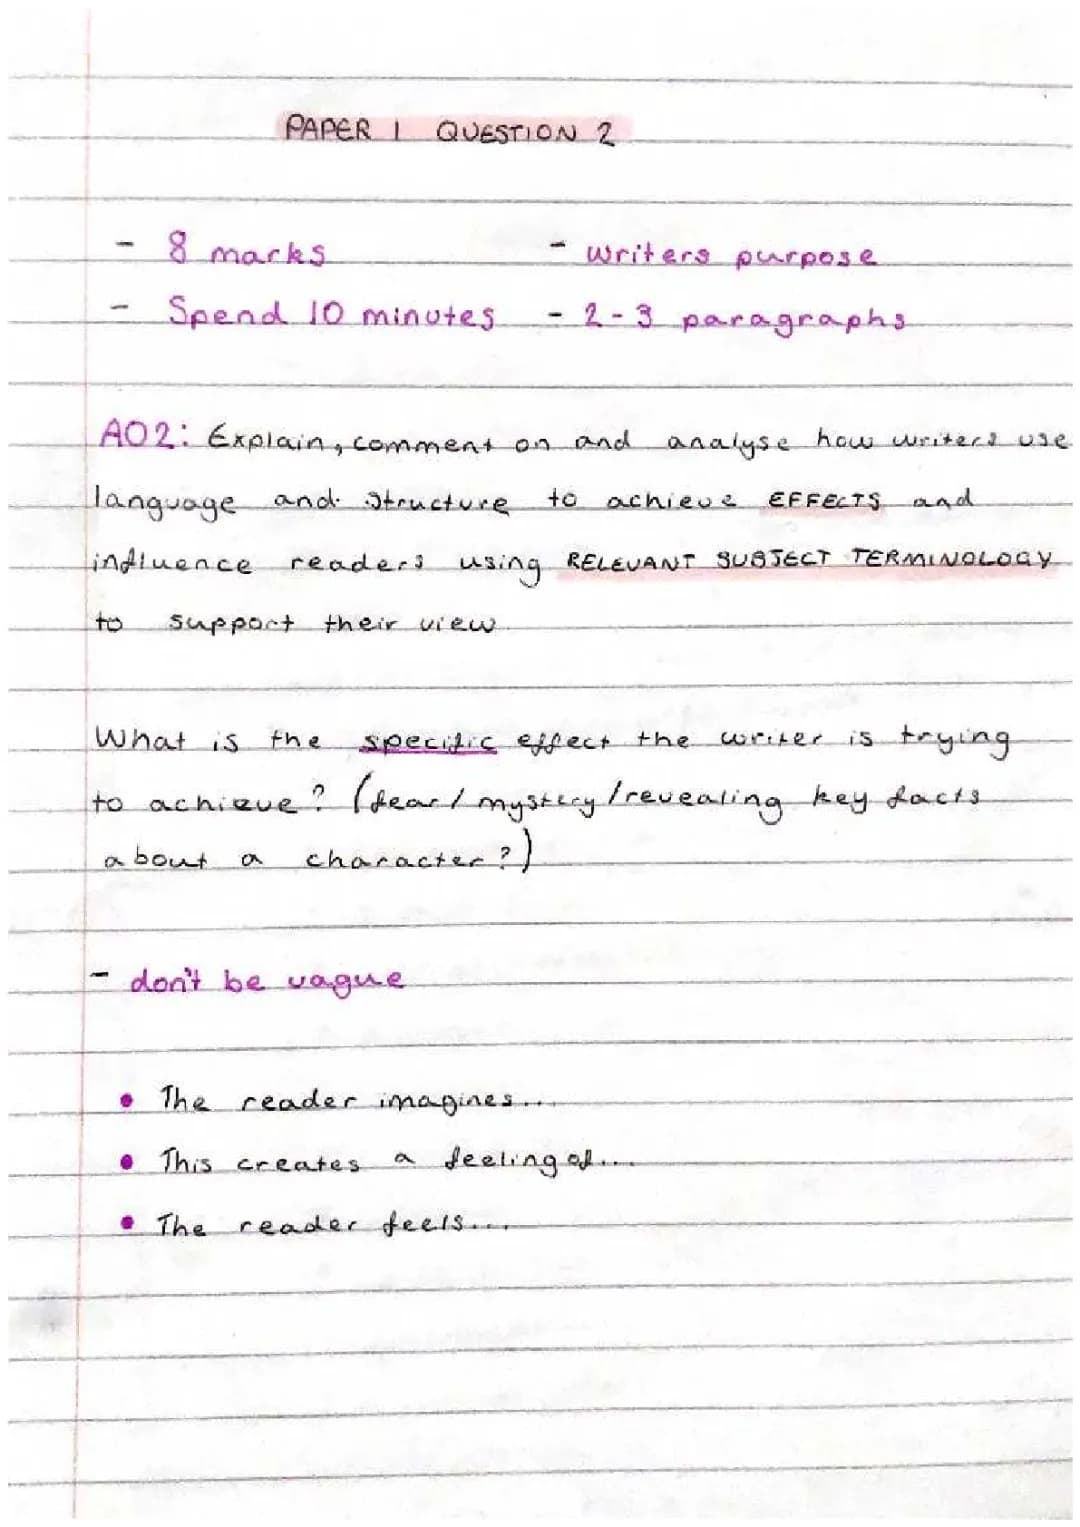 PAPER 1 QUESTION 2
- 8 marks - writers purpose
- Spend 10 minutes - 2-3 paragraphs
AO2: Explain, comment on and analyse how writers use
language and structure to achieve EFFECTS and
influence readers using RELEVANT SUBJECT TERMINOLOGY
to support their view
What is the specific effect the writer is trying
to achieve? (fear/mystery/revealing key facts
about a character?)
- don't be vague
• The reader imagines...
• This creates a feeling of...
• The reader feels...